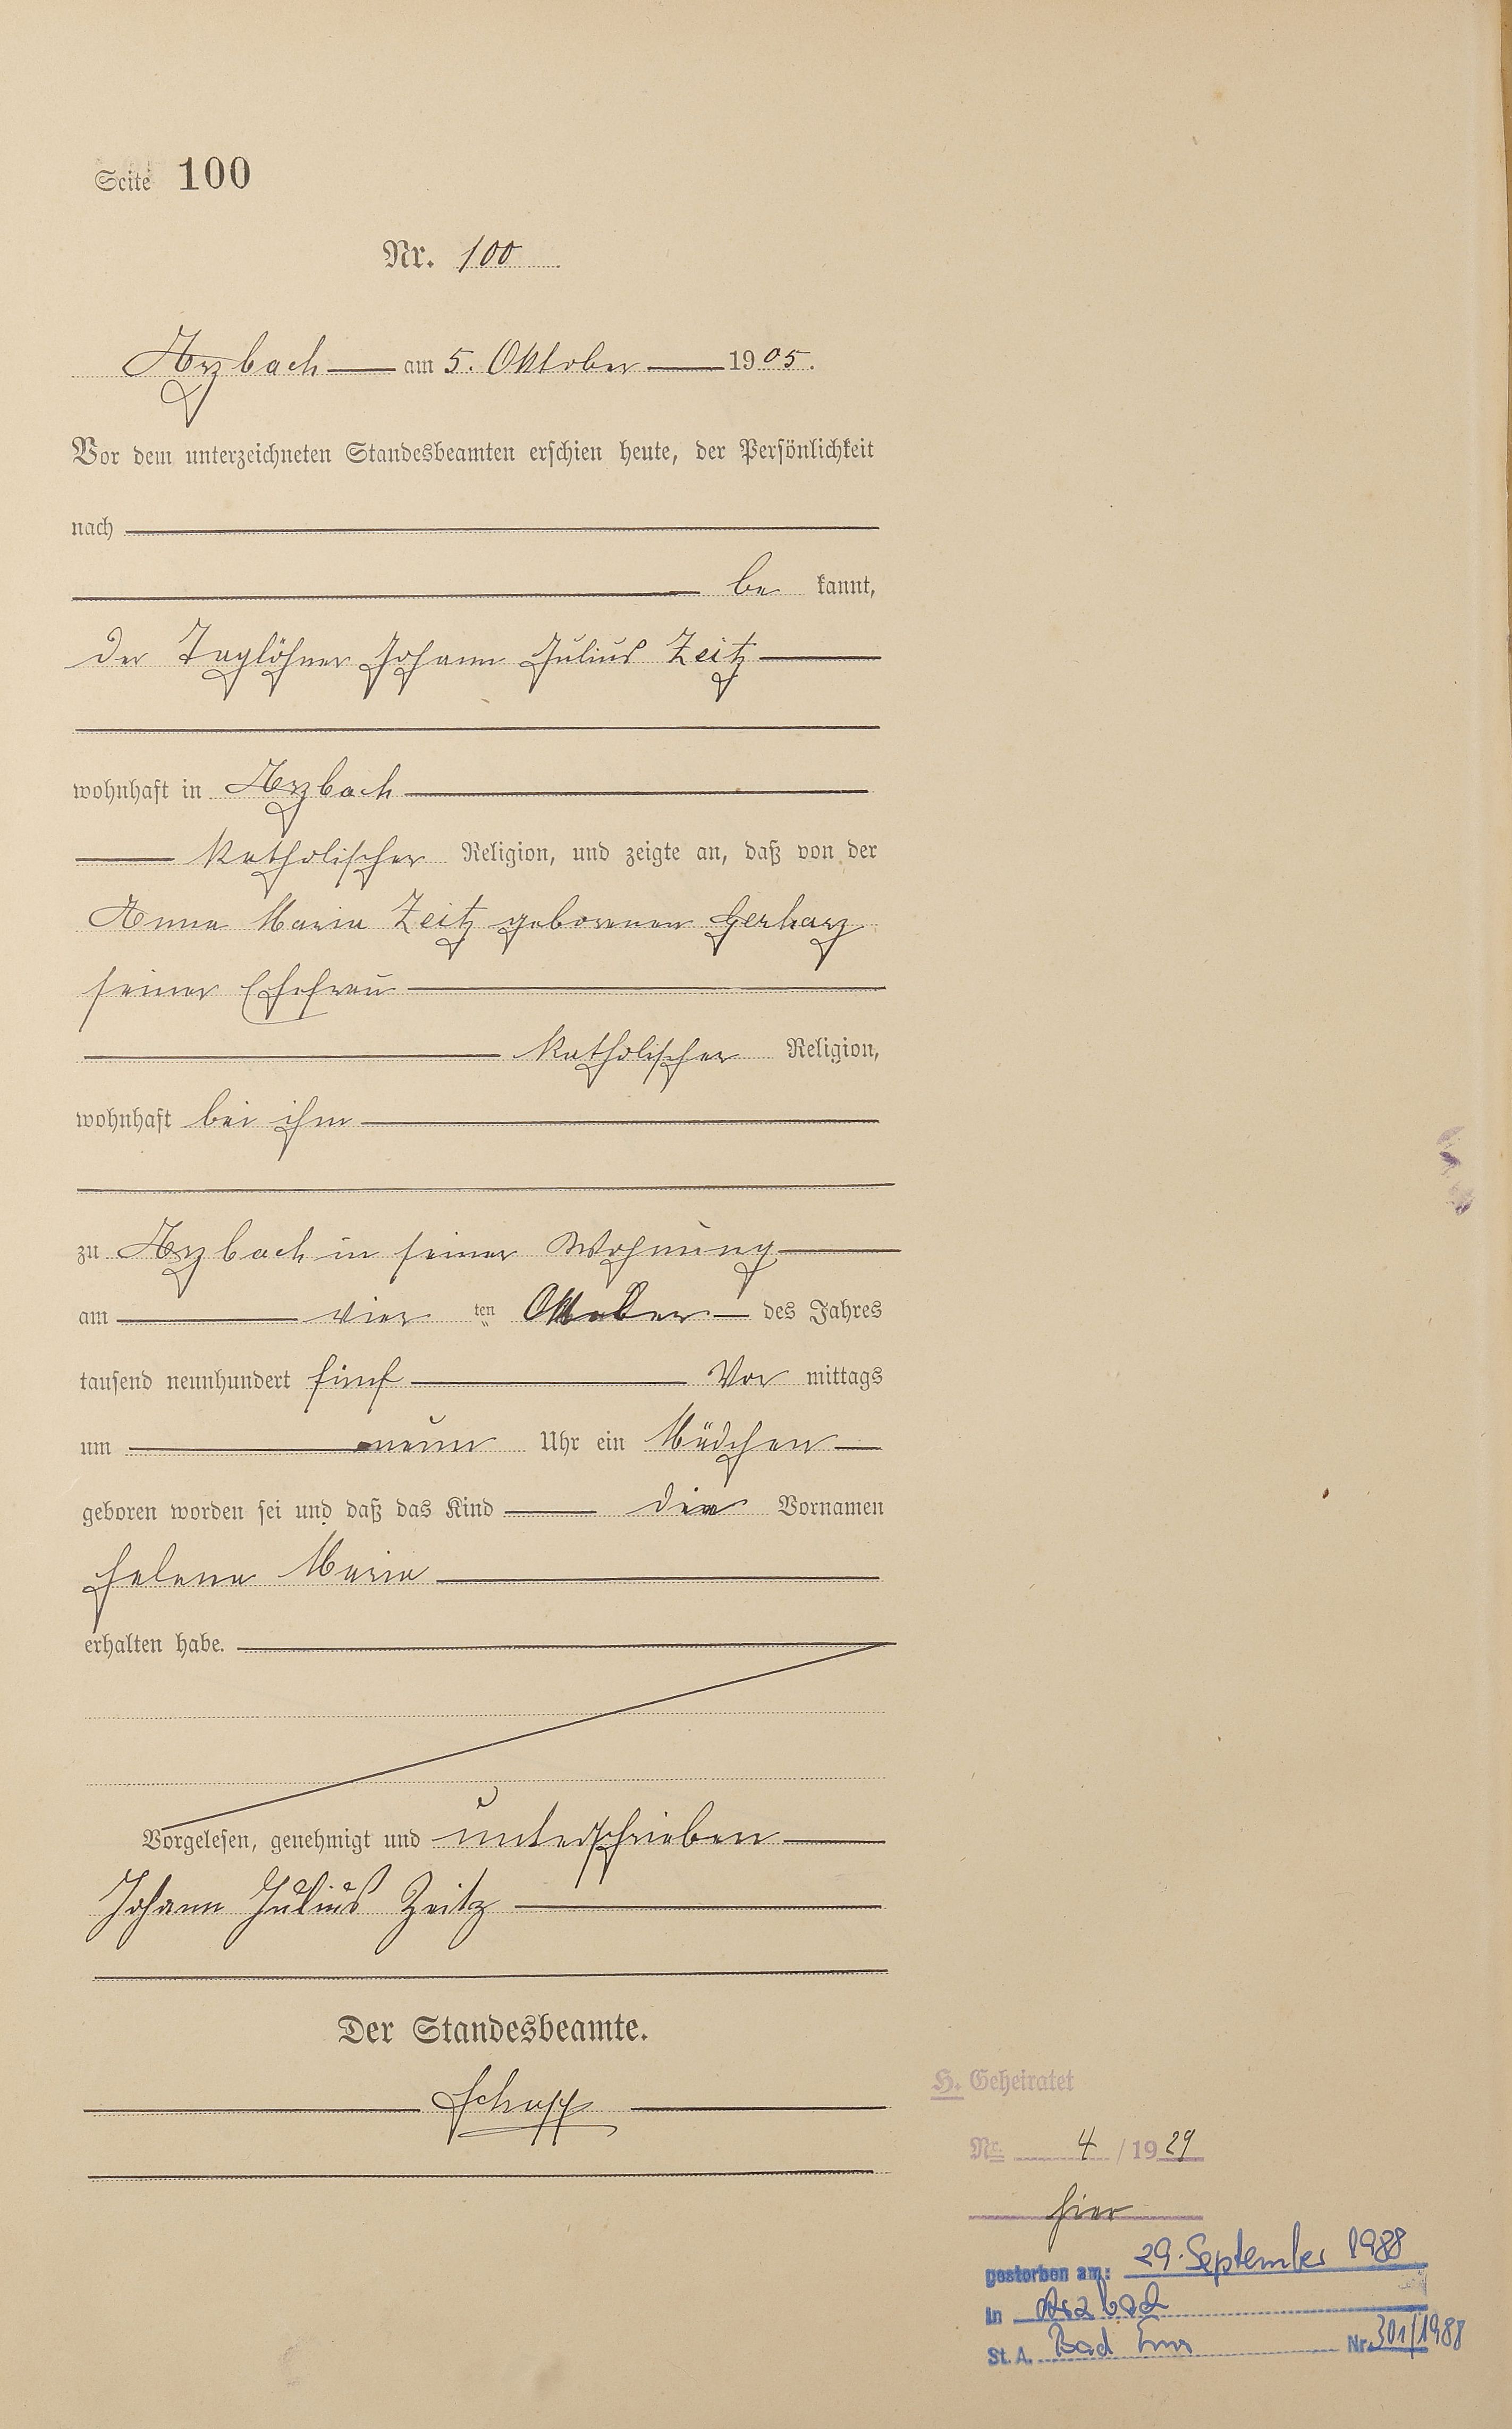 Seite 100
Nr. 100
Arzbach am 5. Oktober 1905.
Vor dem unterzeichneten Standesbeamten erschien heute, der Persönlichkeit
nach
be kannt,
der Taglöhner Johann Julius Zeitz
wohnhaft in Arzbach
katholischer Religion, und zeigte an, daß von der
Anna Maria Zeitz geborenen Gerharz
seiner Ehefrau
katholischer Religion,
wohnhaft bei ihm
zu Arzbach in seiner Wohnung
am vier ten Oktober des Jahres
tausend neunhundert fünf Vor mittags
um neun Uhr ein Mädchen
geboren worden sei und daß das Kind die Vornamen
Helena Maria
erhalten habe.
Vorgelesen, genehmigt und unterschrieben
Johann Julius Zeitz
Der Standesbeamte.
Schupp
H. Geheiratet
Nr. 4 / 1929
hier
gestorben am: 29. September 1988
in Arzbach
St. A. Bad Ems Nr. 301/1988